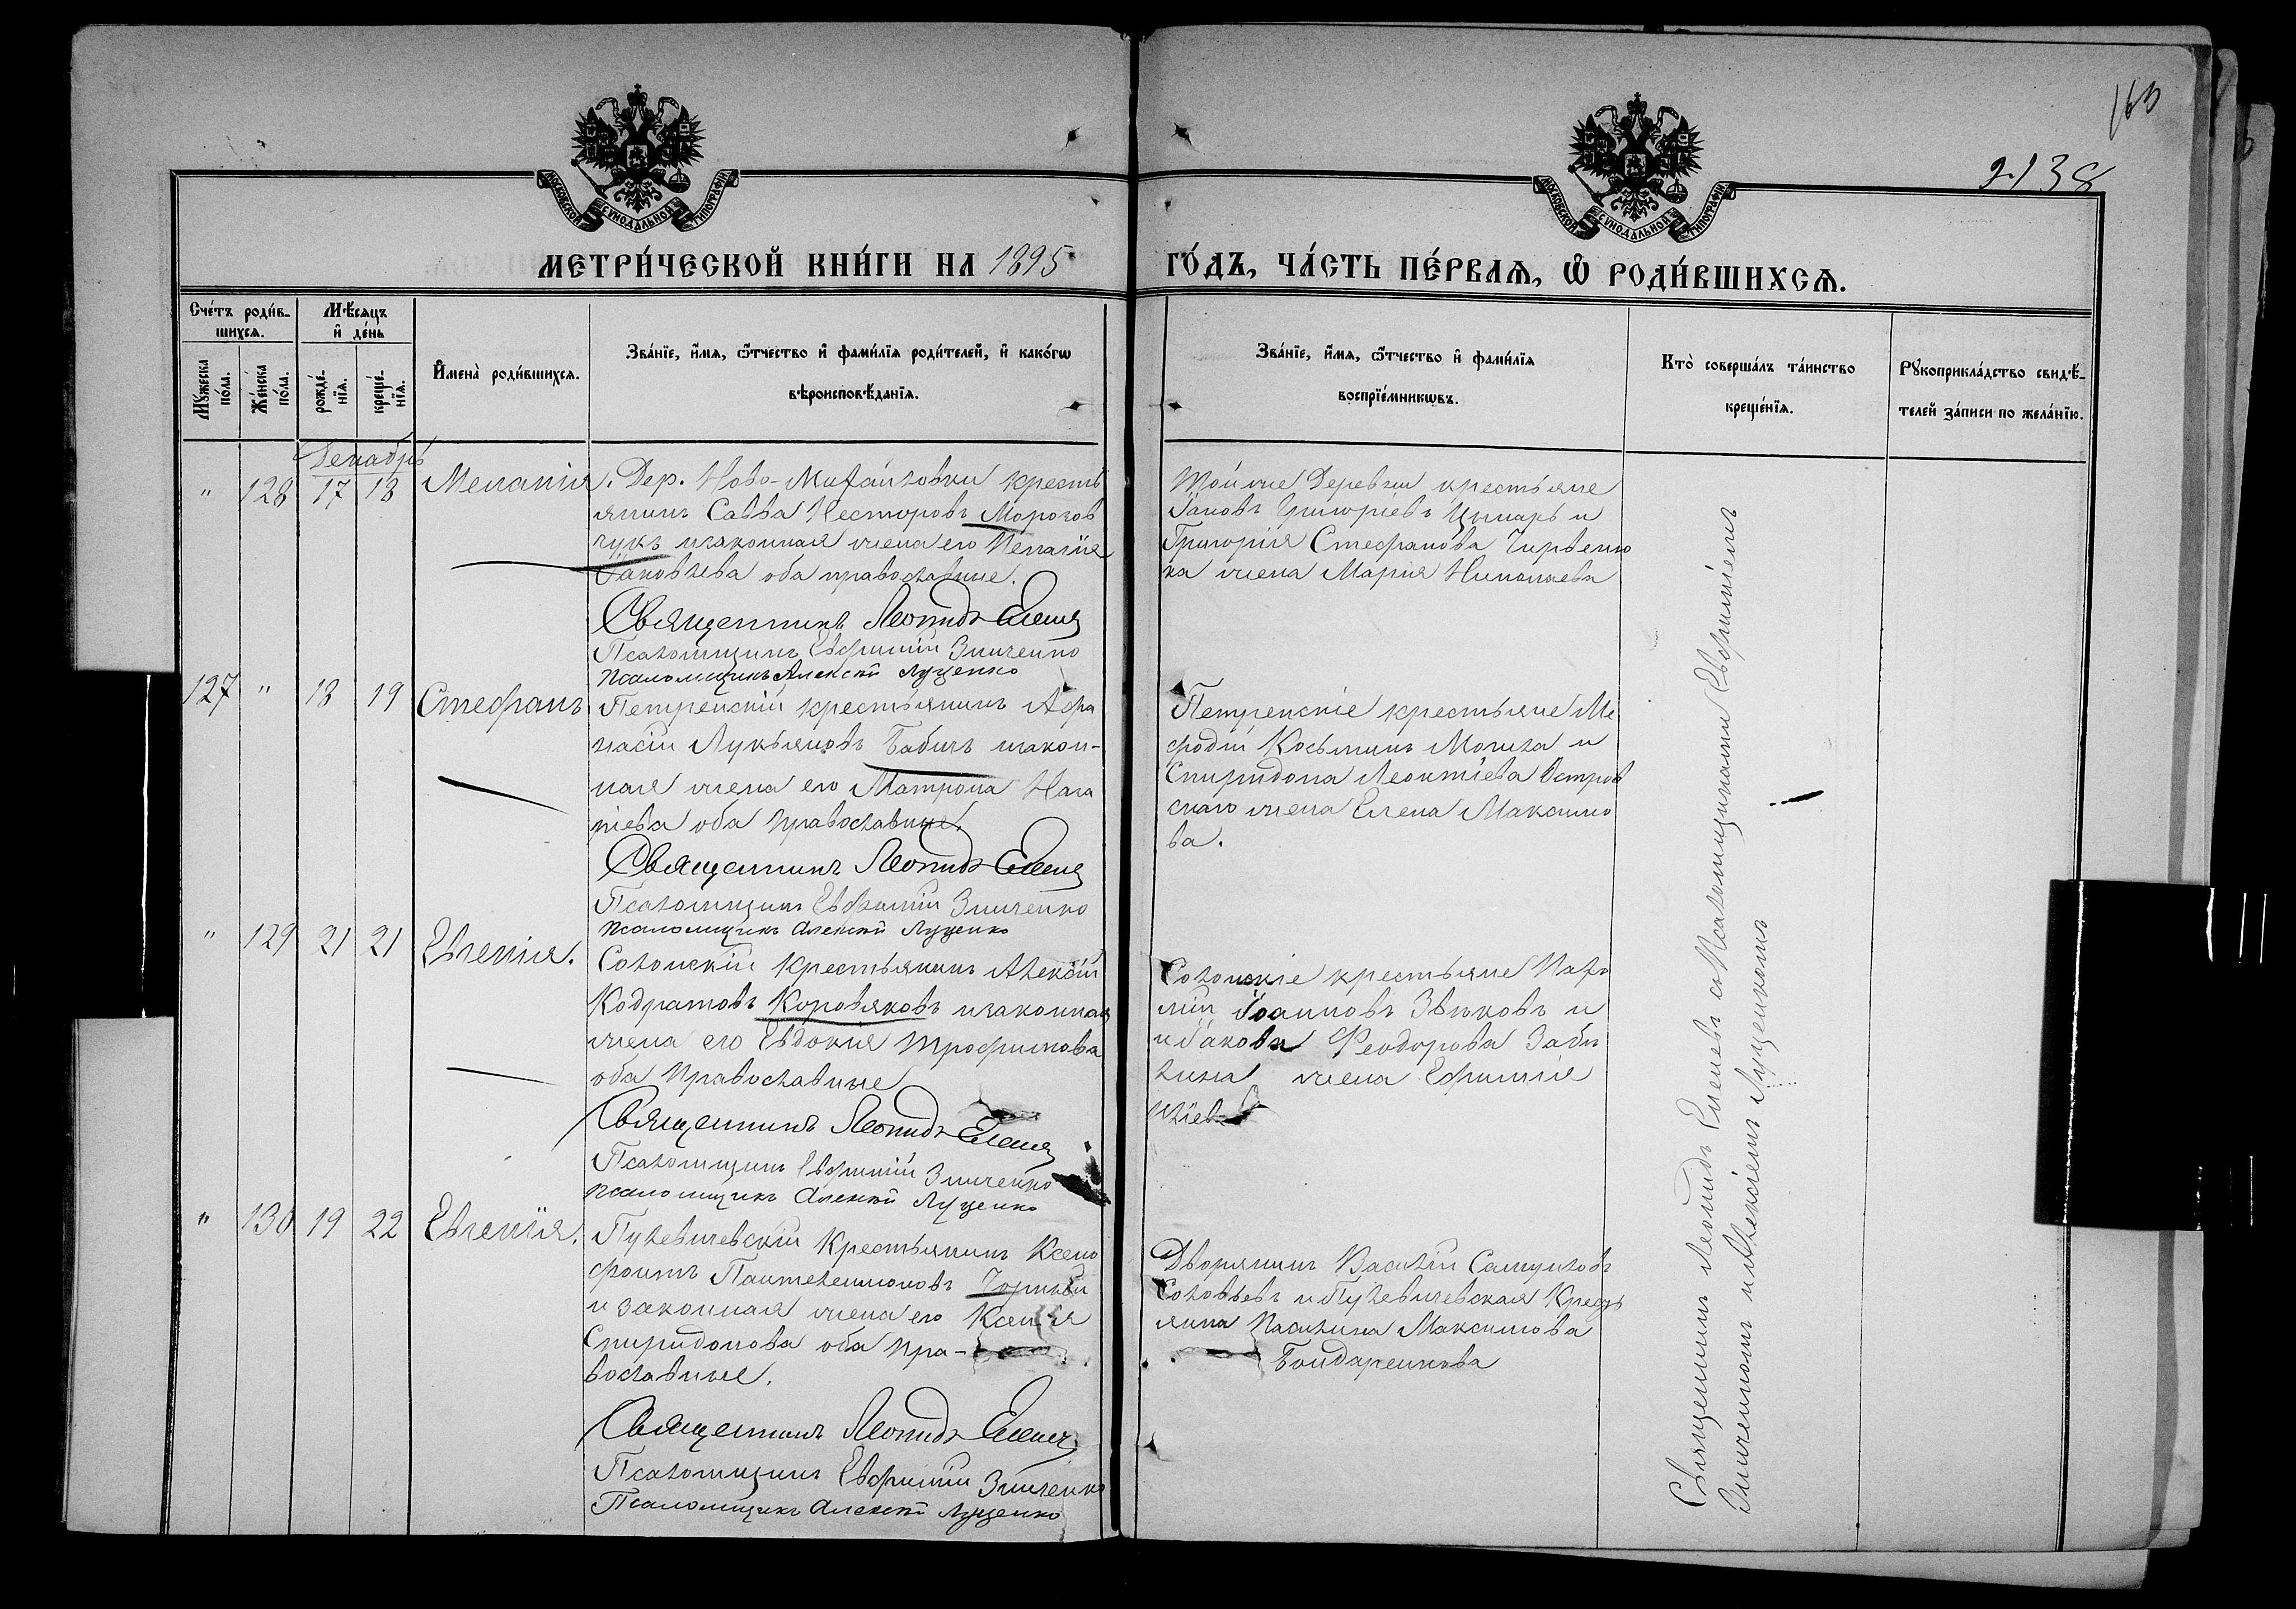 163
2138
МОСКОВСКОЙ СУНОДАЛЬНОЙ ТИПОГРАФІИ
МОСКОВСКОЙ СУНОДАЛЬНОЙ ТИПОГРАФІИ
МЕТРИ́ЧЕСКОЙ КНИ́ГИ НА 1895
ГО́ДЪ, ЧА́СТЬ ПЕ́РВАѦ, Ѿ РОДИ́ВШИХСѦ.
Сче́тъ роди́в-
шихсѧ.
Мꙋжеска по́ла.
Же́нска по́ла.
Мѣ́сѧцъ
и҆ де́нь
рожде́-
нїѧ.
креще́-
нїѧ.
И҆мена̀ роди́вшихсѧ.
Зва́нїе, и҆́мѧ, ѻ҆́тчество и҆ фами́лїѧ роди́телей, и҆ како́гѡ
вѣроисповѣ́данїѧ.
Зва́нїе, и҆́мѧ, ѻ҆́тчество и҆ фами́лїѧ
воспрїе́мникѡвъ.
Кто̀ соверша́лъ та́инство
креще́нїѧ.
Рꙋкоприкла́дство свидѣ́-
телей за́писи по жела́нїю.
Декабрь
" 128 17 18 Меланія.
Дер. Ново-Михайловки кресть
янинъ Савва Несторовъ Морозов
чукъ изаконная жена его Пелагія
Яковлева оба православные.
Священникъ Леонидъ Еленев
Псаломщикъ Евфимій Зинченко
Псаломщикъ Алексій Луценко
Тойже Деревни крестьяне
Іаковъ Григоріевъ Цымарь и
Григорія Стефанова Чирвенко
ка жена Марія Николаева
127 " 18 19 Стефанъ
Петренскій крестьянинъ Афа
насій Лукьяновъ Бабичъ изакон-
ная жена его Матрона Иг
тіева оба православные.
Священникъ Леонидъ Еленев
Псаломщикъ Евфимій Зинченко
Псаломщикъ Алексій Луценко
Петренскіе крестьяне Ме
фодій Косьминъ Могила и
Спиридона Леонтіева Остров
скаго жена Елена Максимо
ва.
" 129 21 21 Евгенія.
Солонскій крестьянинъ Алексій
Кодратовъ Коровяковъ изаконная
жена его Евдокія Трофимова
оба Православные
Священникъ Леонидъ Еленев
Псаломщикъ Евфимій Зинченко
Псаломщикъ Алексій Луценко
Солонскіе крестьяне Пахо
мій Іоанновъ Звѣковъ и
и Іакова Феодорова Заби
лина жена Ефимія
Иліева
" 130 19 22 Евгенія.
Пулевичевскій Крестьянинъ Ксено
фонтъ Пантелеимоновъ Чорный
и законная жена его Ксенія
Спиридонова оба пра-
вославные.
Священникъ Леонидъ Еленев
Псаломщикъ Евфимій Зинченко
Псаломщикъ Алексій Луценко
Дворянинъ Василій Самуиловъ
Соловьевъ и Пулевичевская Крест
янка Пасилина Максимова
Бондаренкова
Священникъ Леонидъ Еленевъ с Псаломщиками Евфиміемъ
Зинченкомъ и Алексіемъ Луценкомъ